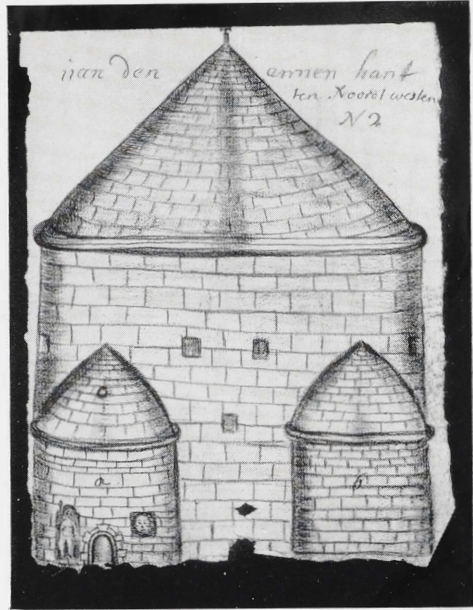 van den ennen hant
ten Noordt westen
N 2
a
b